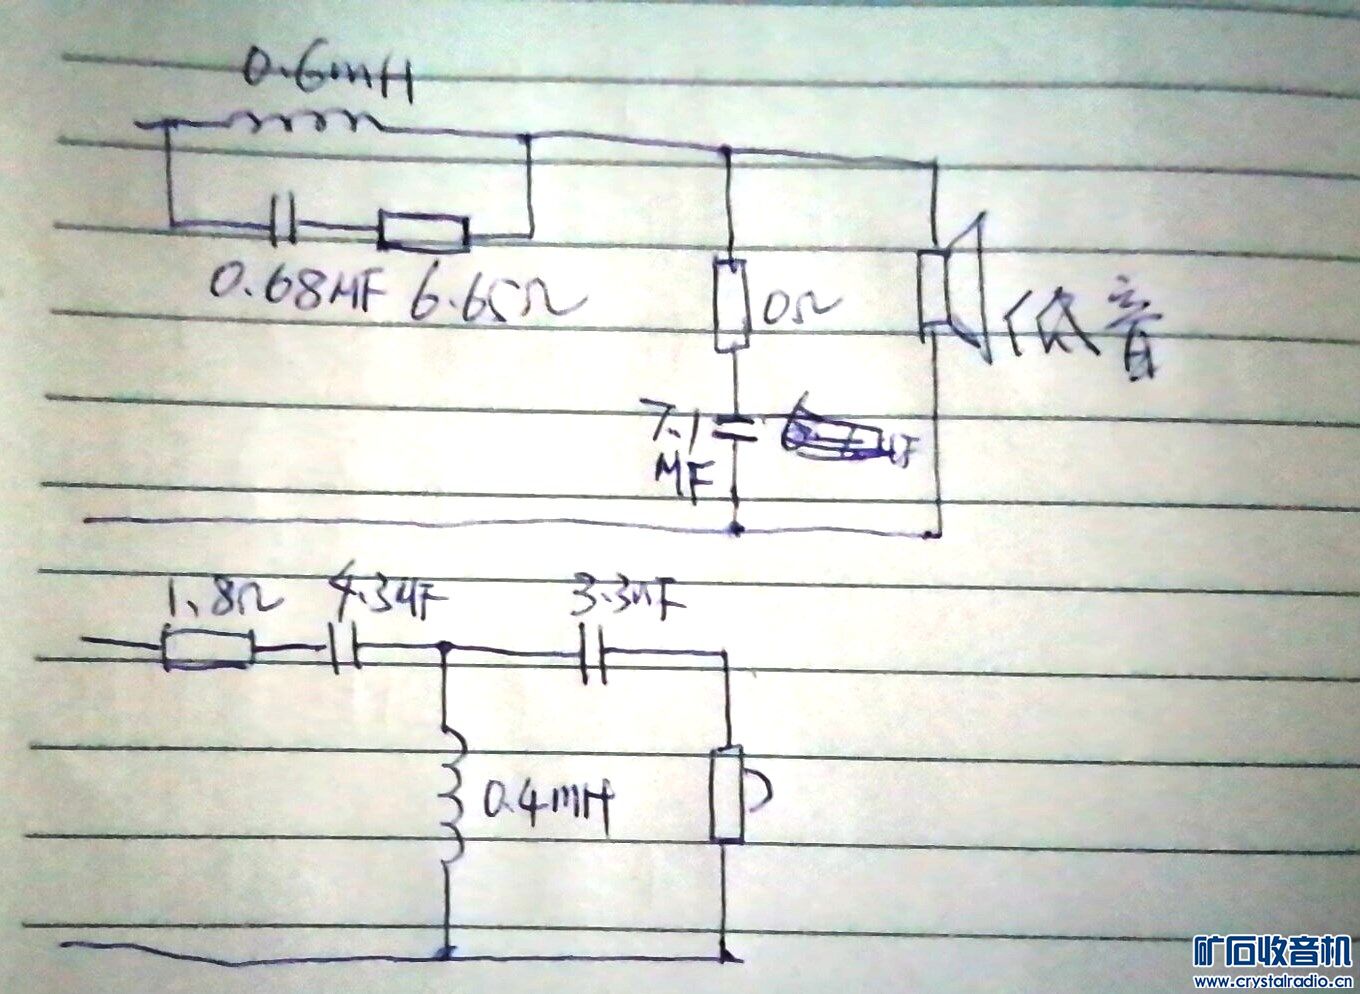 0.6mH
0.68MF 6.65Ω
0Ω
低音
7.1
MF
1.8Ω 4.3uF 3.3uF
0.4mH
矿石收音机
www.crystalradio.cn